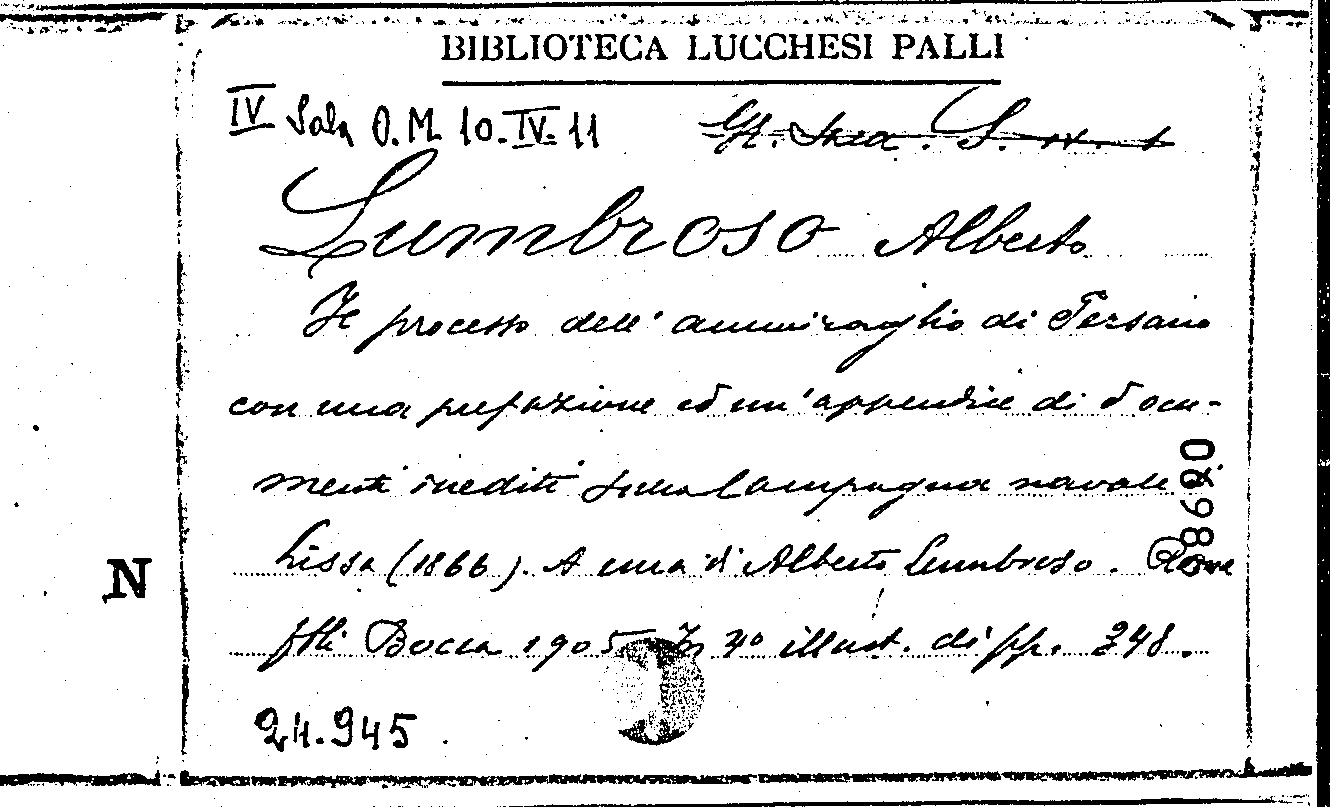 BIBLIOTECA LUCCHESI PALLI
IV Sala O.M. 10.IV.11
Lumbroso Alberto
Il processo dell'ammiraglio di Persano
con una prefazione ed un'appendice di docu-
menti inediti sulla Campagna navale
Lissa (1866). A cura di Alberto Lumbroso. Roma
f.lli Bocca 1905 In 4º illust. di pp. 248.
24.945
N
08620